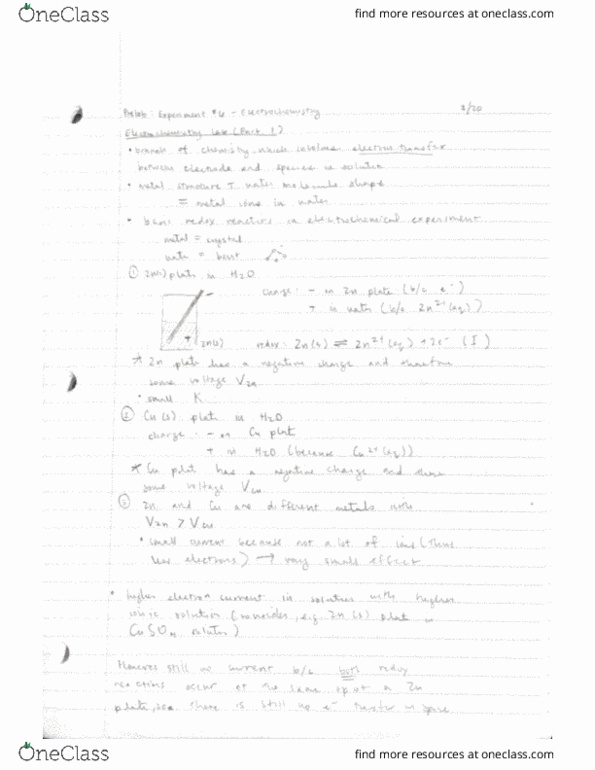 OneClass
find more resources at oneclass.com
Prelab: Experiment #6 - Electrochemistry 3/20
Electrochemistry Lab (Part 1)
• branch of chemistry which involves electron transfer
between electrode and species in solution
• metal structure + water molecule shape
= metal ions in water
• basic redox reactions in electrochemical experiment
metal = crystal
water = bent
① Zn(s) plate in H2O
charge: - on Zn plate (b/c e-)
+ in water (b/c Zn2+(aq))
Zn(s)
redox: Zn(s) ⇌ Zn2+(aq) + 2e- (I)
* Zn plate has a negative charge and therefore
some voltage VZn
• small K
② Cu(s) plate in H2O
charge: - on Cu plate
+ in H2O (because Cu2+(aq))
* Cu plate has a negative charge and
some voltage VCu
③ Zn and Cu are different metals with
VZn > VCu
• small current because not a lot of ions (thus
less electrons) → very small effect
• higher electron current in solution with higher
ionic solution (consider, e.g. Zn(s) plate in
CuSO4 solution)
However still no current b/c both redox
reactions occur at the same spot on Zn
plate, there is still no e- transfer in space
OneClass
find more resources at oneclass.com